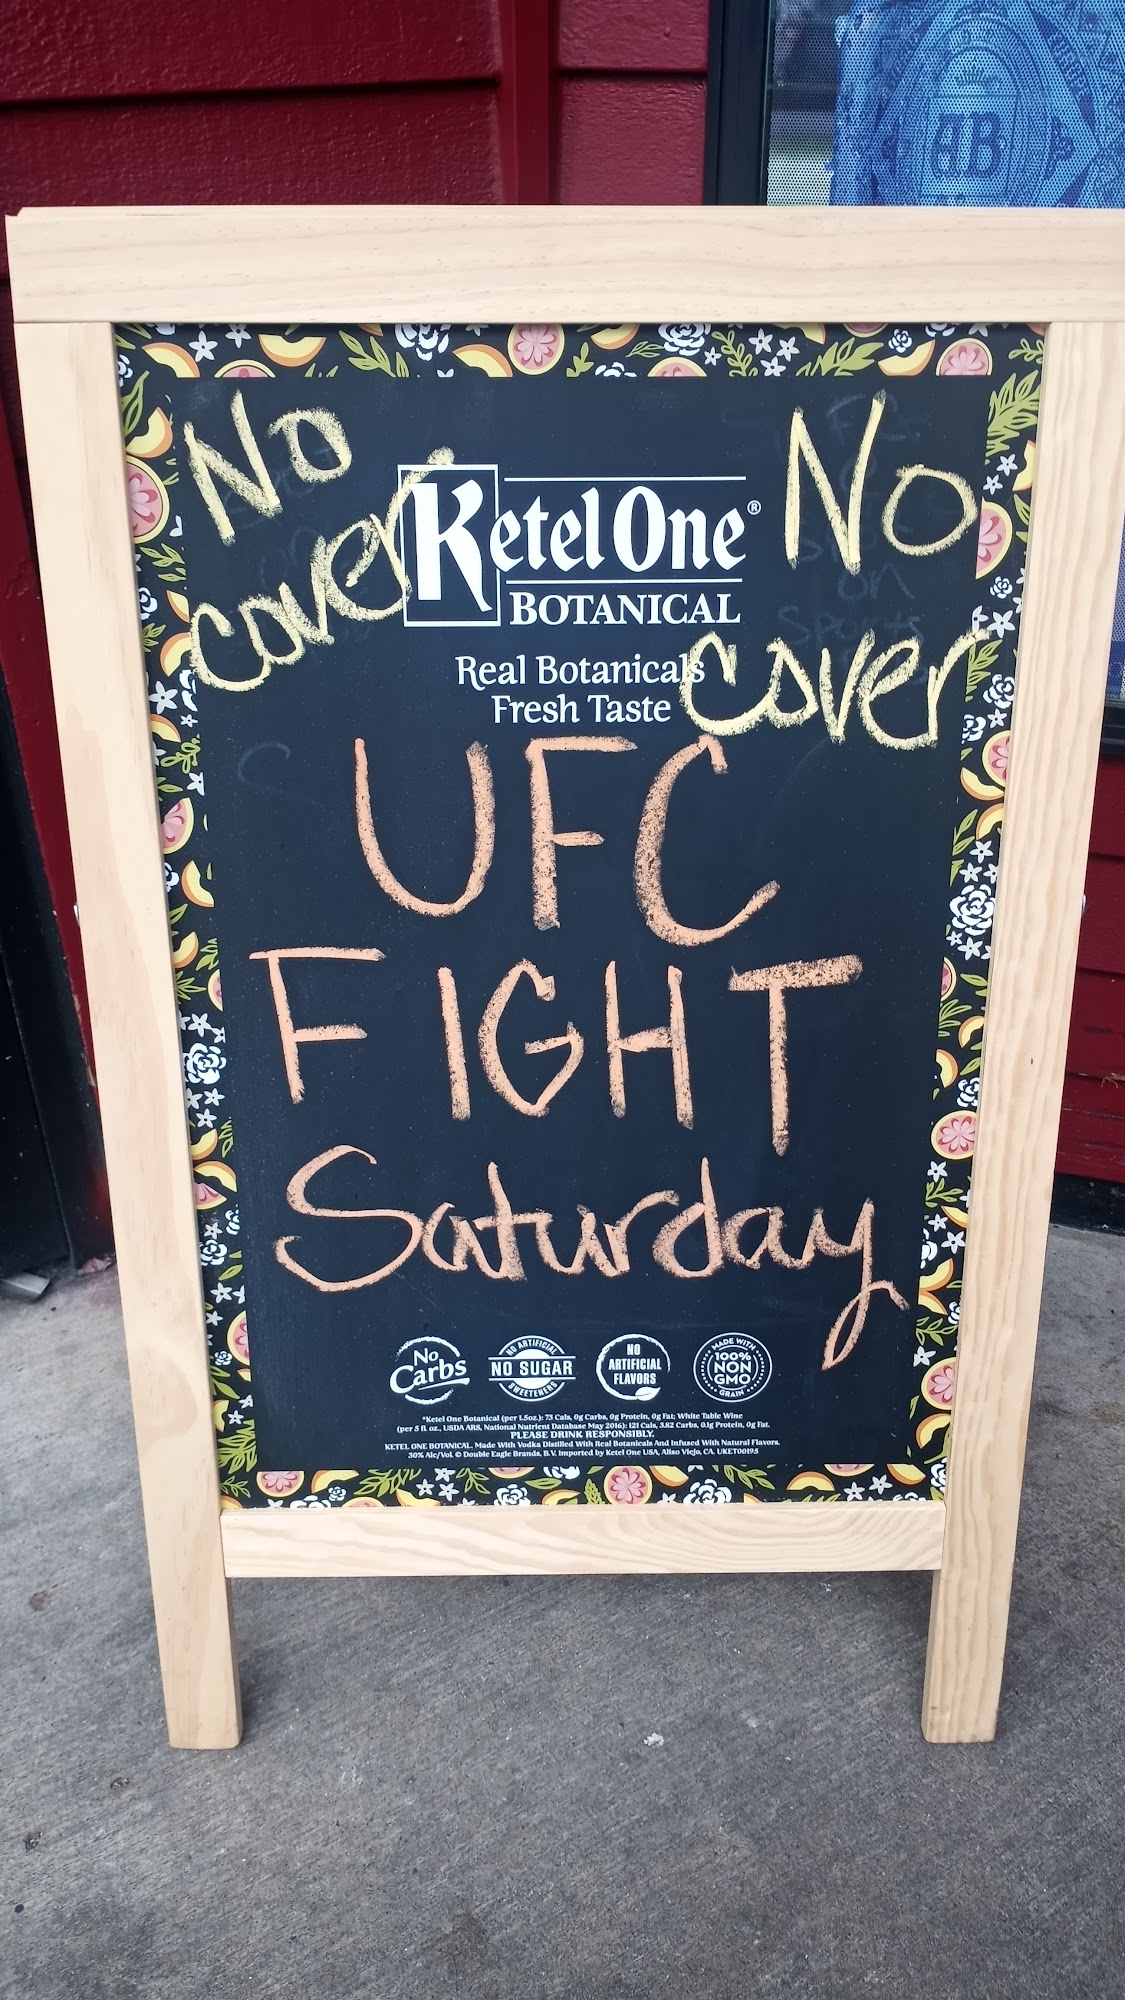 AB
No
cover
No
cover
Ketel One®
BOTANICAL
Real Botanicals
Fresh Taste
UFC
FIGHT
Saturday
No
Carbs
NO ARTIFICIAL
NO SUGAR
SWEETENERS
NO
ARTIFICIAL
FLAVORS
MADE WITH
100%
NON
GMO
GRAIN
*Ketel One Botanical (per 1.5oz.): 73 Cals, 0g Carbs, 0g Protein, 0g Fat; White Table Wine
(per 5 fl. oz., USDA ARS, National Nutrient Database May 2016): 121 Cals, 3.82 Carbs, 0.1g Protein, 0g Fat.
PLEASE DRINK RESPONSIBLY.
KETEL ONE BOTANICAL. Made With Vodka Distilled With Real Botanicals And Infused With Natural Flavors.
30% Alc/Vol. © Double Eagle Brands, B.V. Imported by Ketel One USA, Aliso Viejo, CA. UKET00195